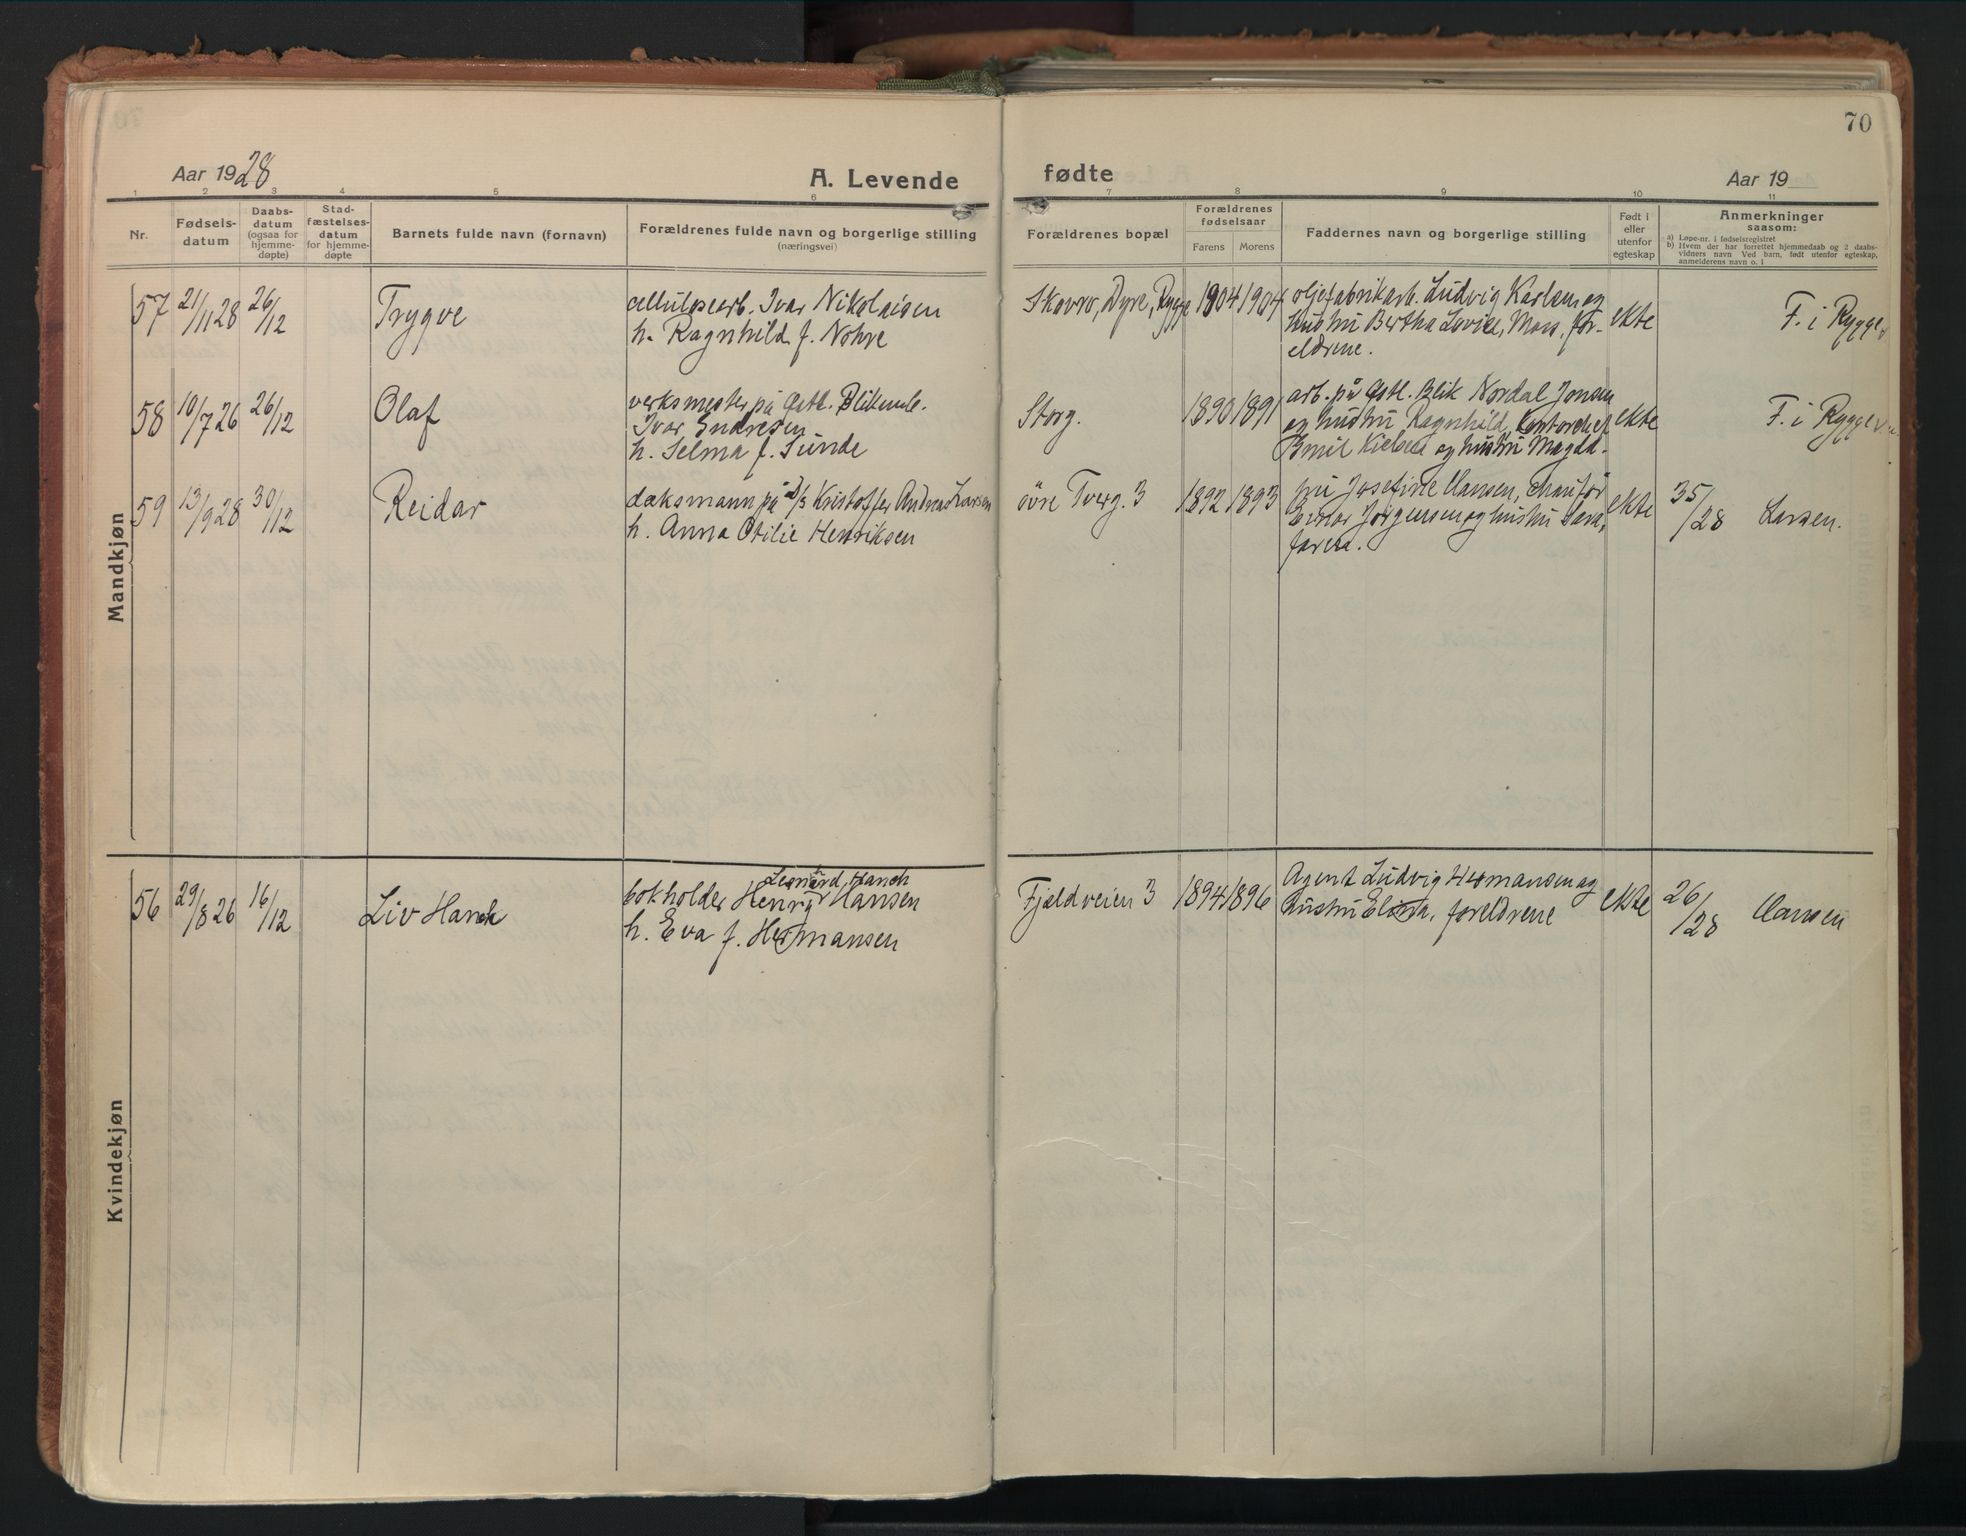 70
Aar 1928
A. Levende
fødte
Aar 19
1 2 3 4 5 6 7 8 9 10 11
Nr.
Fødsels-
datum
Daabs-
datum
(ogsaa for
hjemme-
døpte)
Stad-
fæstelses-
datum
for hjemme-
døpte
Barnets fulde navn (fornavn)
Forældrenes fulde navn og borgerlige stilling
(næringsvei)
Forældrenes bopæl
Forældrenes
fødselsaar
Farens Morens
Faddernes navn og borgerlige stilling
Født i
eller
utenfor
egteskap
Anmerkninger
saasom:
a) Løpe-nr. i fødselsregistret
b) Hvem der har forrettet hjemmedaab og 2 daabs-
vidners navn Ved barn, født utenfor egteskap,
anmelderens navn o. l
Mandkjøn
57 21/11 28 26/12 Trygve
cellulosearb. Ivar Nikolaisen
h. Ragnhild f. Nohre
Skovro, Dyre, Rygge 1904 1904
oljefabrikarb. Ludvig Karlsen og
hustru Bertha Lovise, Moss, for-
eldrene.
ekte F. i Rygge
58 10/7 26 26/12 Olaf
verksmester på Østl. Blikemb.
Ivar Endresen
h. Selma f. Sunde
Storg. 1890 1891
arb. på Østl. Blik Nordal Jonsen
og hustru Ragnhild, kontorchef
Emil Kielsen og hustru Magda.
ekte F. i Rygge
59 13/9 28 30/12 Reidar
dæksmann på D/S Kristoffer Andreas Larsen
h. Anna Otilie Henriksen
øvre Tverg. 3 1892 1893
fru Josefine Hansen, chauffør
Einar Jørgensen og hustru Sara,
faren.
ekte 35/28 Larsen.
Kvindekjøn
56 29/8 26 16/12 Liv Hanch
Leonard Hanch
bokholder Henry Hansen
h. Eva f. Hermansen
Fjeldveien 3 1894 1896
Agent Ludvig Hermansen og
hustru Elna, foreldrene
ekte 26/28 Hansen